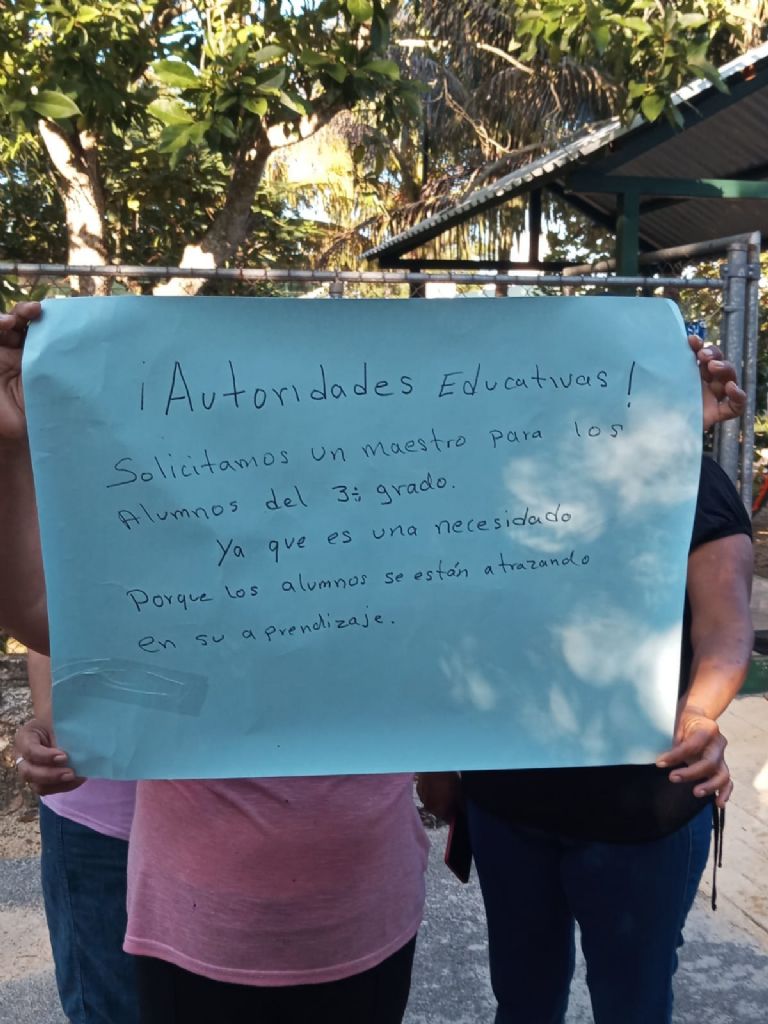 ¡Autoridades Educativas!
Solicitamos un maestro para los
Alumnos del 3÷ grado.
Ya que es una necesidado
Porque los alumnos se están atrazando
en su aprendizaje.